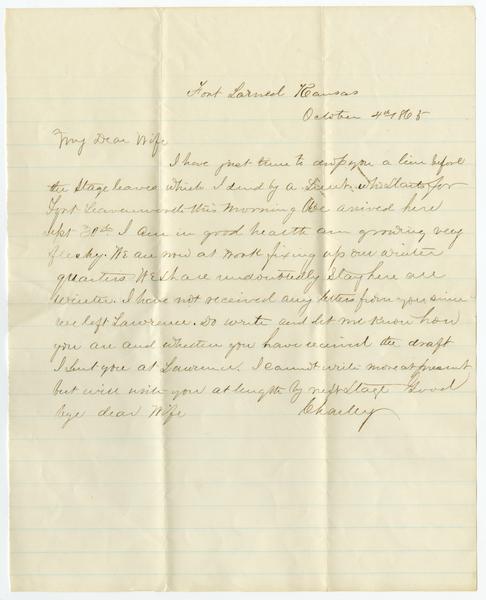 Fort Larned Kansas
October 4th 1865
My Dear Wife
I have just time to drop you a line before
the Stage leaves which I send by a Lieut. who Starts for
Fort Leavenworth this Morning We arived here
Sept 30th I am in good health am growing very
fleshy. We are now at work fixing up our winter
quarters We shall undoubtedly stay here all
winter I have not received any letters from you since
we left Lawrence. Do write and let me know how
you are and whether you have received the draft
I sent you at Lawrence. I cannot write more at present
but will write you at length by next Stage Good
bye dear Wife Charley